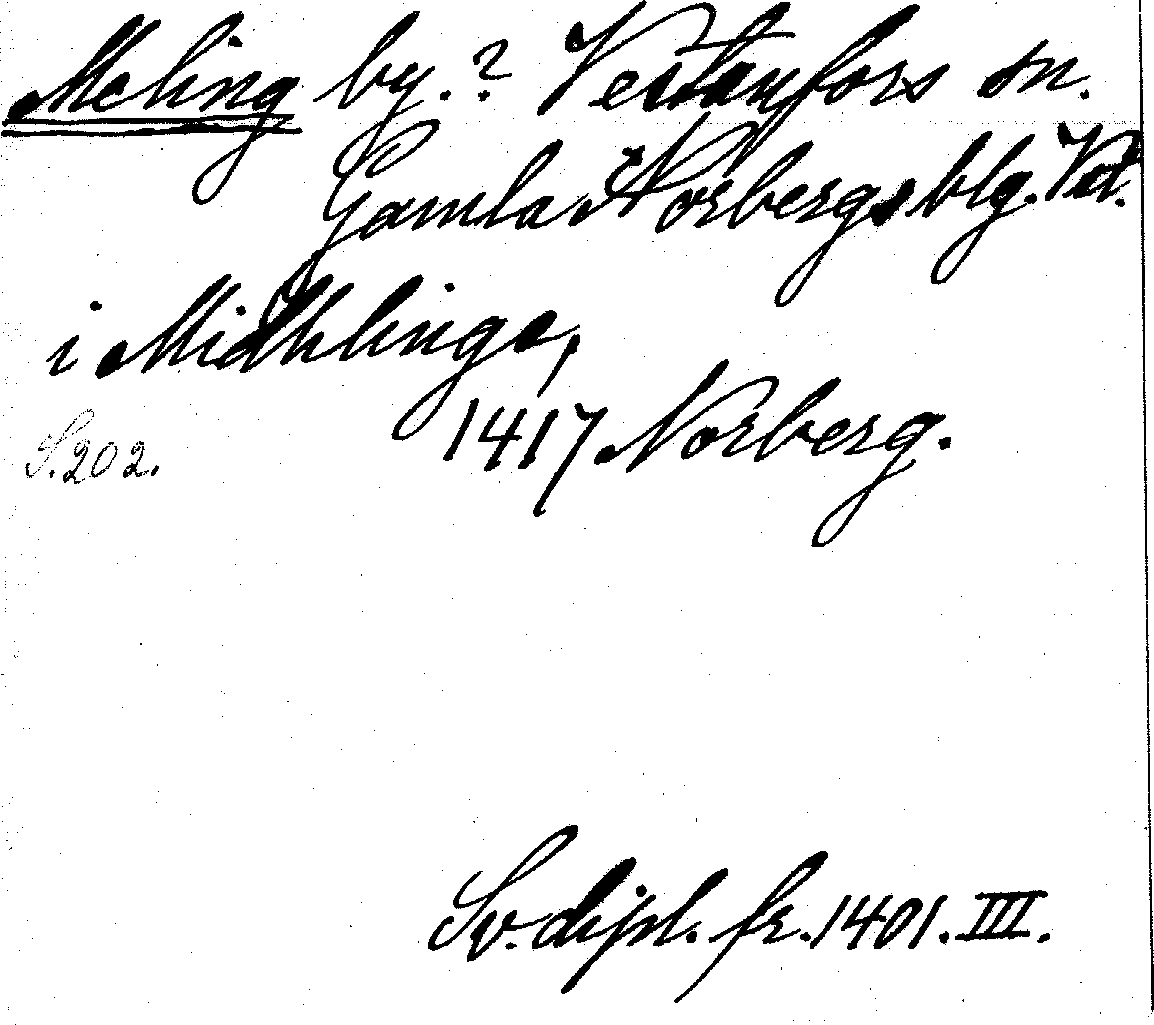 Meling by.? Vestanfors sn.
Gamla Norbergs blg. Vstl.
i Midhlinge,
1417 Norberg.
S. 202.
Sv. dipl. fr. 1401. III.